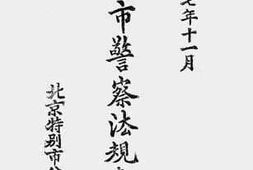 七年十一月
市警察法規
北京特別市